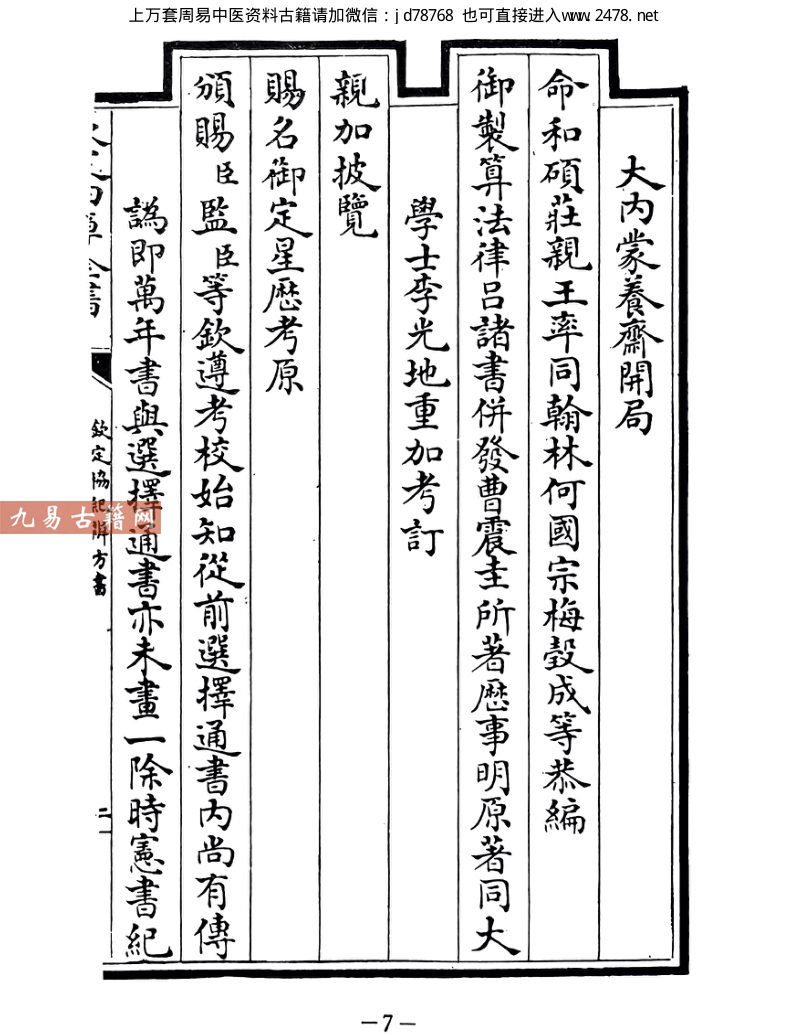 上万套周易中医资料古籍请加微信：jd78768 也可直接进入www.2478.net
大内蒙養齋開局
命和碩莊親王率同翰林何國宗梅瑴成等恭編
御製算法律呂諸書併發曹震圭所著歷事明原著同大
學士李光地重加考訂
親加披覽
賜名御定星歷考原
頒賜臣監臣等欽遵考校始知從前選擇通書内尚有傳
譌即萬年書與選擇通書亦未畫一除時憲書紀
全書
欽定協紀辨方書
二
九易古籍网
—7—